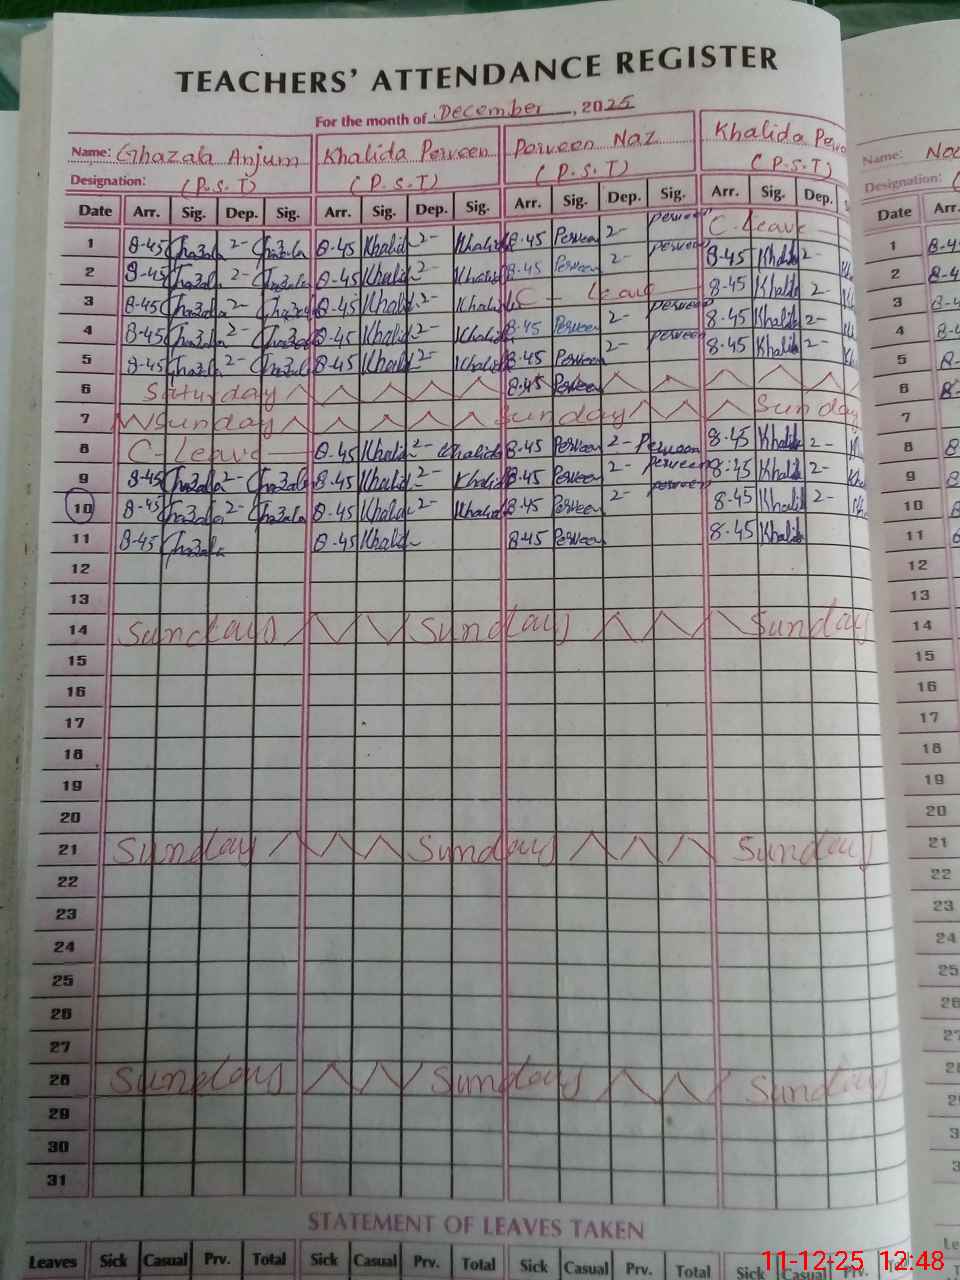 TEACHERS' ATTENDANCE REGISTER
For the month of December, 2025
Name: Ghazala Anjum Khalida Perveen Perveen Naz Khalida Perv
Designation: (P.S.T) (P.S.T) (P.S.T) (P.S.T)
Date Arr. Sig. Dep. Sig. Arr. Sig. Dep. Sig. Arr. Sig. Dep. Sig. Arr. Sig. Dep.
1 8-45 Ghazala 2- Ghazala 8-45 Khalid 2- Khalid 8-45 Perveen 2- perveen C-Leave
2 8-45 Ghazala 2- Ghazala 8-45 Khalid 2- Khalid 8-45 Perveen 2- perveen 8-45 Khalid 2-
3 8-45 Ghazala 2- Ghazala 8-45 Khalid 2- Khalid C - Leave 8-45 Khalid 2-
4 8-45 Ghazala 2- Ghazala 8-45 Khalid 2- Khalid 8-45 Perveen 2- perveen 8-45 Khalid 2-
5 8-45 Ghazala 2- Ghazala 8-45 Khalid 2- Khalid 8-45 Perveen 2- perveen 8-45 Khalid 2-
6 Saturday 8-45 Perveen
7 Sunday Sunday Sunday
8 C-Leave 8-45 Khalid 2- Khalida 8-45 Perveen 2- Perveen 8-45 Khalid 2-
9 8-45 Ghazala 2- Ghazala 8-45 Khalid 2- Khalid 8-45 Perveen 2- perveen 8-45 Khalid 2-
10 8-45 Ghazala 2- Ghazala 8-45 Khalid 2- Khalid 8-45 Perveen 2- perveen 8-45 Khalid 2-
11 8-45 Ghazala 8-45 Khalid 8-45 Perveen 8-45 Khalid
12
13
14 Sunday Sunday Sunday
15
16
17
18
19
20
21 Sunday Sunday Sunday
22
23
24
25
26
27
28 Sunday Sunday Sunday
29
30
31
STATEMENT OF LEAVES TAKEN
Leaves Sick Casual Prv. Total Sick Casual Prv. Total Sick Casual Prv. Total Sick Casual Prv.
Name:
Designation:
Date Arr.
1
2
3
4
5
6
7
8
9
10
11
12
13
14
15
16
17
18
19
20
21
22
23
24
25
11-12-25 12:48